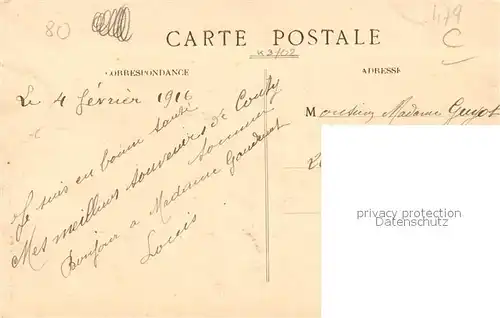 80
1,79
C
CARTE POSTALE
K3/02
CORRESPONDANCE
ADRESSE
Le 4 février 1916
Je suis en bonne santé
Mes meilleurs souvenirs de Conty
Somme
Bonjour a Madame Gaudenet
Louis
Monsieur Madame Guyot
privacy protection
Datenschutz